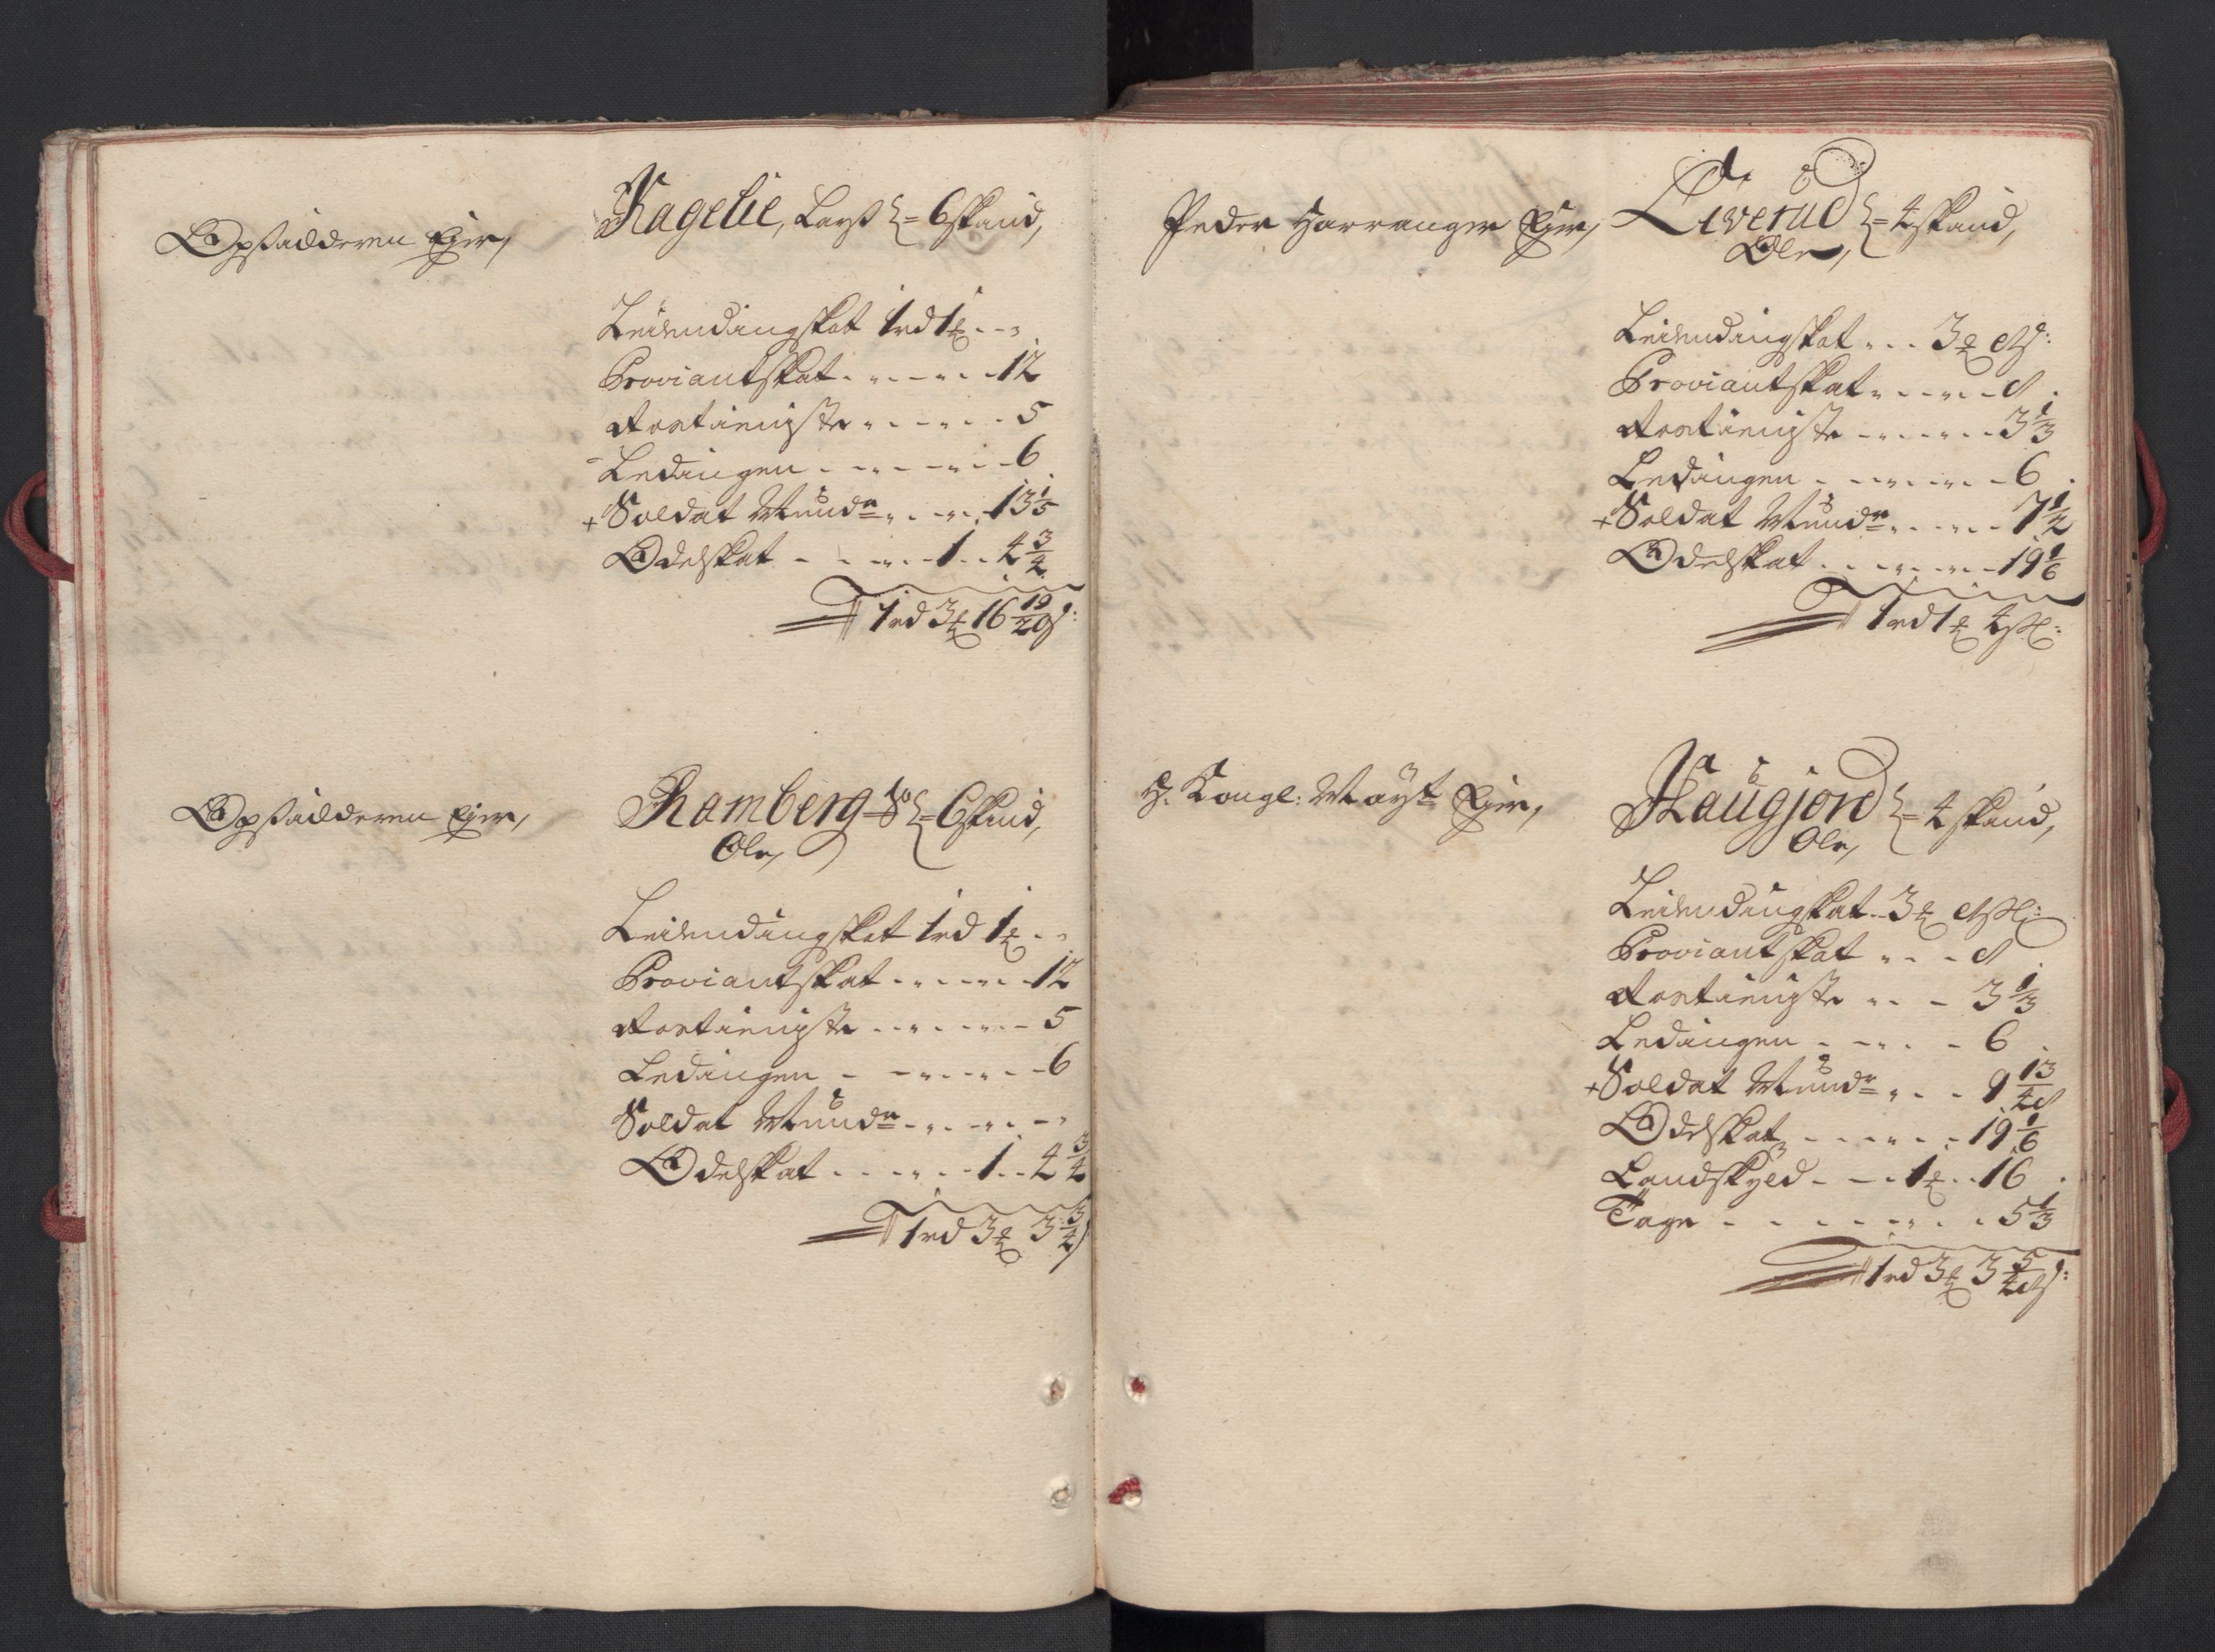 Opsidderen Ejer,
Kagelie, Larß = 6 skind,
Leilendingskat 1 rd 1 ort - -
Proviantskat - - - - 12
Rostieniste - - - - 5
Ledingen - - - - 6
+ Soldat Mund: - - - 13 1/5
Odelskat - - - 1 - 4 3/4
1 rd 3 ort 16 19/20 s:
Opsidderen Ejer,
Ramberg = 6 skind,
Ole,
Leilendingskat 1 rd 1 ort - -
Proviantskat - - - - 12
Rostieniste - - - - 5
Ledingen - - - - 6
Soldat Mund: - - - -
Odelskat - - - 1 - 4 3/4
1 rd 3 ort 3 3/4 s
Peder Harranger Ejer,
Liverud = 4 skind,
Ole,
Leilendingskat - - - 3 ort 8 s:
Proviantskat - - - - 8
Rostieniste - - - - 3 1/3
Ledingen - - - - 6
+ Soldat Mund: - - - 7 1/2
Odelskat - - - - 19 1/6
1 rd 1 ort 4 sk:
H: Kongl: Mayt Ejer,
Haugjord = 4 skind,
Ole,
Leilendingskat - 3 ort 8 sk:
Proviantskat - - - 8
Rostieniste - - - 3 1/3
Ledingen - - - - 6
+ Soldat Mund: - - - 9 13/48
Odelskat - - - - 19 1/6
Landskyld - - - 1 ort - 16
Tage - - - - - 5 1/3
1 rd 3 ort 3 5/48 s: